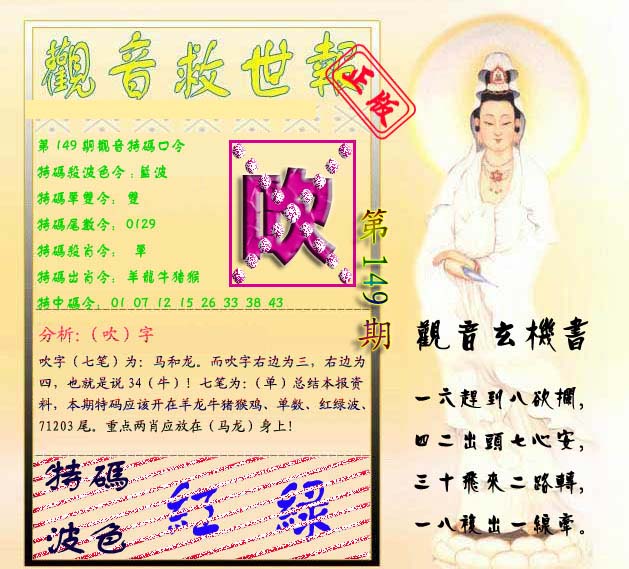 觀音救世報
正版
第149期觀音特碼口令
特碼殺波色令:藍波
特碼單雙令: 雙
特碼尾數令: 0129
特碼殺肖令: 單
特碼出肖令: 羊龍牛猪猴
特中碼令: 01 07 12 15 26 33 38 43
吹
第149期
分析:（吹）字
吹字（七笔）为：马和龙。而吹字右边为三，右边为
四，也就是说 34（牛）！七笔为:（单）总结本报资
料，本期特码应该开在羊龙牛猪猴鸡、单数、红绿波、
71203 尾。重点两肖应放在（马龙）身上！
特碼
波色
紅 綠
觀音玄機書
一六趕到八欲攔，
四二出頭七心安，
三十飛來二路轉，
一八複出一線牽。